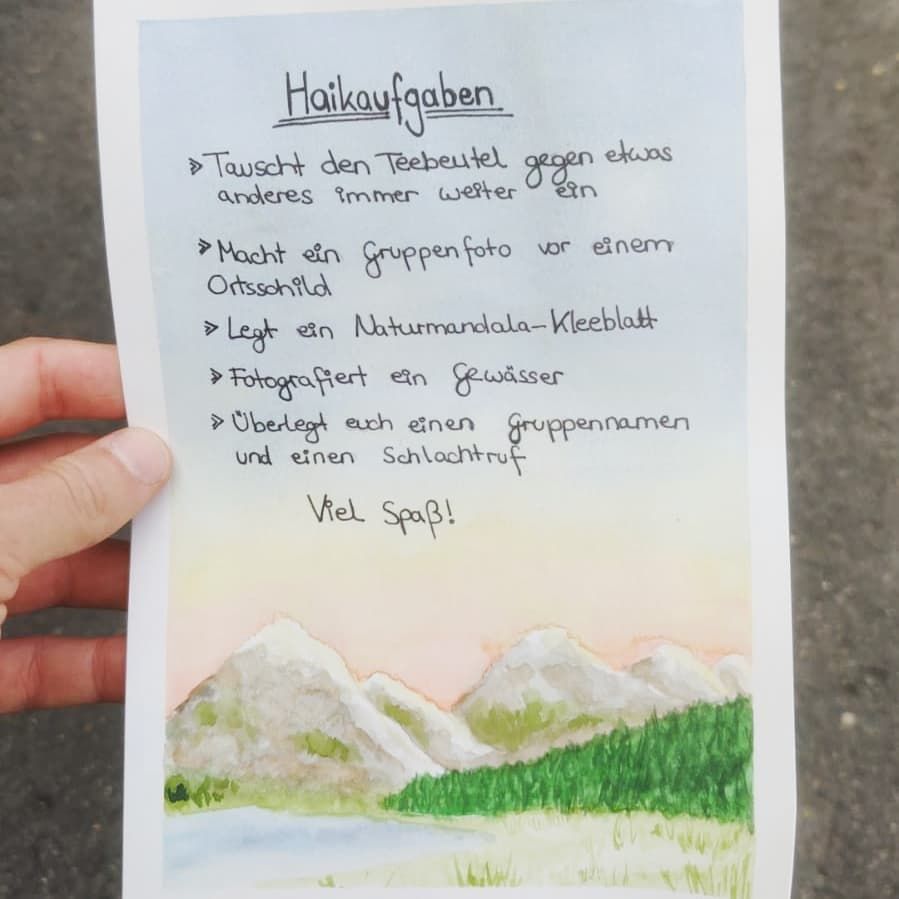 Haikaufgaben
» Tauscht den Teebeutel gegen etwas
anderes immer weiter ein
» Macht ein Gruppenfoto vor einem
Ortsschild
» Legt ein Naturmandala-Kleeblatt
» Fotografiert ein Gewässer
» Überlegt euch einen Gruppennamen
und einen Schlachtruf
Viel Spaß!